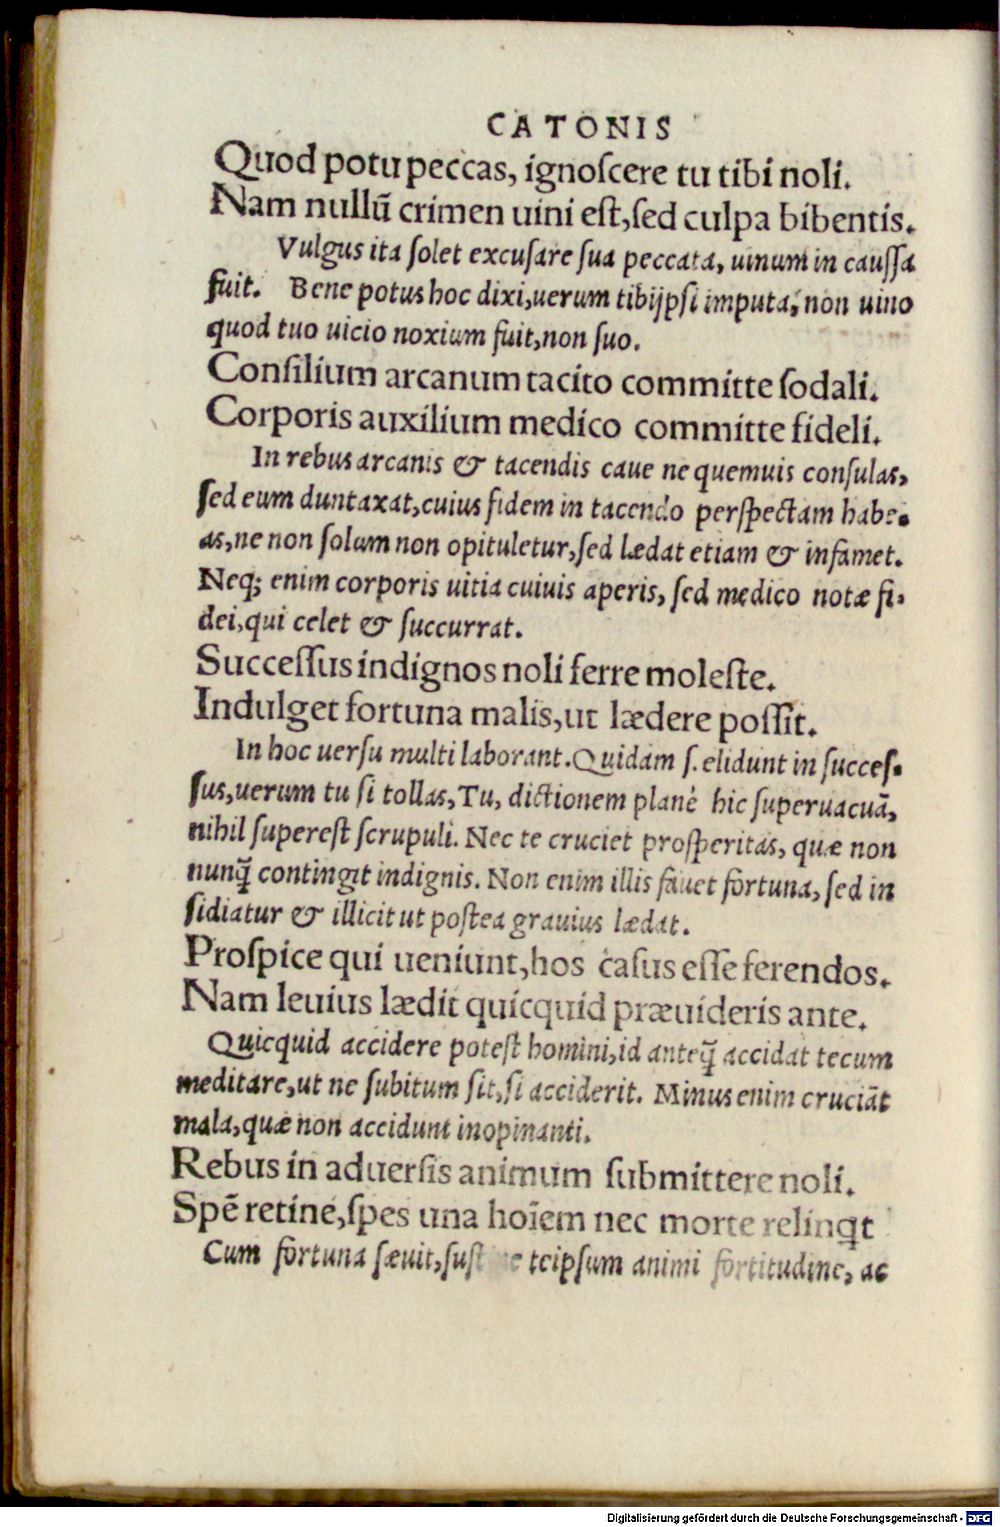 CATONIS
Quod potu peccas, ignoſcere tu tibi noli.
Nam nullũ crimen uini eſt, ſed culpa bibentis.
Vulgus ita ſolet excuſare ſua peccata, uinum in cauſſa
fuit. Bene potus hoc dixi, uerum tibijpſi imputa, non uino
quod tuo uicio noxium fuit, non ſuo.
Conſilium arcanum tacito committe ſodali.
Corporis auxilium medico committe fideli.
In rebus arcanis & tacendis caue ne quemuis conſulas,
ſed eum duntaxat, cuius fidem in tacendo perſpectam habe-
as, ne non ſolum non opituletur, ſed lædat etiam & infamet.
Neq; enim corporis uitia cuiuis aperis, ſed medico notæ fi-
dei, qui celet & ſuccurrat.
Succeſſus indignos noli ferre moleſte.
Indulget fortuna malis, ut lædere poſſit.
In hoc uerſu multi laborant. Quidam ſ. elidunt in ſucceſ-
ſus, uerum tu ſi tollas, Tu, dictionem planè hic ſuperuacuã,
nihil ſupereſt ſcrupuli. Nec te cruciet proſperitas, quæ non
nunq̃ contingit indignis. Non enim illis fauet fortuna, ſed in
ſidiatur & illicit ut poſtea grauius lædat.
Proſpice qui ueniunt, hos caſus eſſe ferendos.
Nam leuius lædit quicquid præuideris ante.
Quicquid accidere poteſt homini, id anteq̃ accidat tecum
meditare, ut ne ſubitum ſit, ſi acciderit. Minus enim cruciãt
mala, quæ non accidunt inopinanti.
Rebus in aduerſis animum ſubmittere noli.
Spẽ retine, ſpes una hoĩem nec morte relinq̃t
Cum fortuna ſæuit, teipſum animi fortitudine, ac
Digitalisierung gefördert durch die Deutsche Forschungsgemeinschaft - DFG